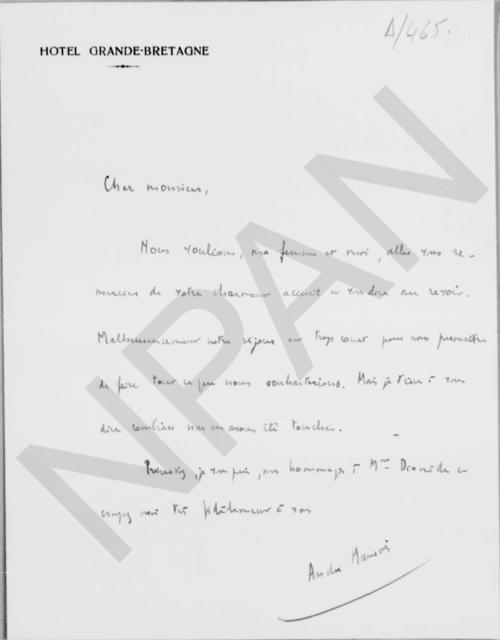 Δ/465.
HOTEL GRANDE-BRETAGNE
Cher monsieur,
Nous voulions, ma femme et moi, aller vous re-
mercier de votre charmant accueil et vous dire au revoir.
Malheureusement notre séjour est trop court pour nous permettre
de faire tout ce que nous souhaiterions. Mais je tiens à vous
dire combien nous en avons été touchés.
Présentez, je vous prie, nos hommages à Mme Diomède et
croyez moi très fidèlement à vous
André Maurois
NPAN